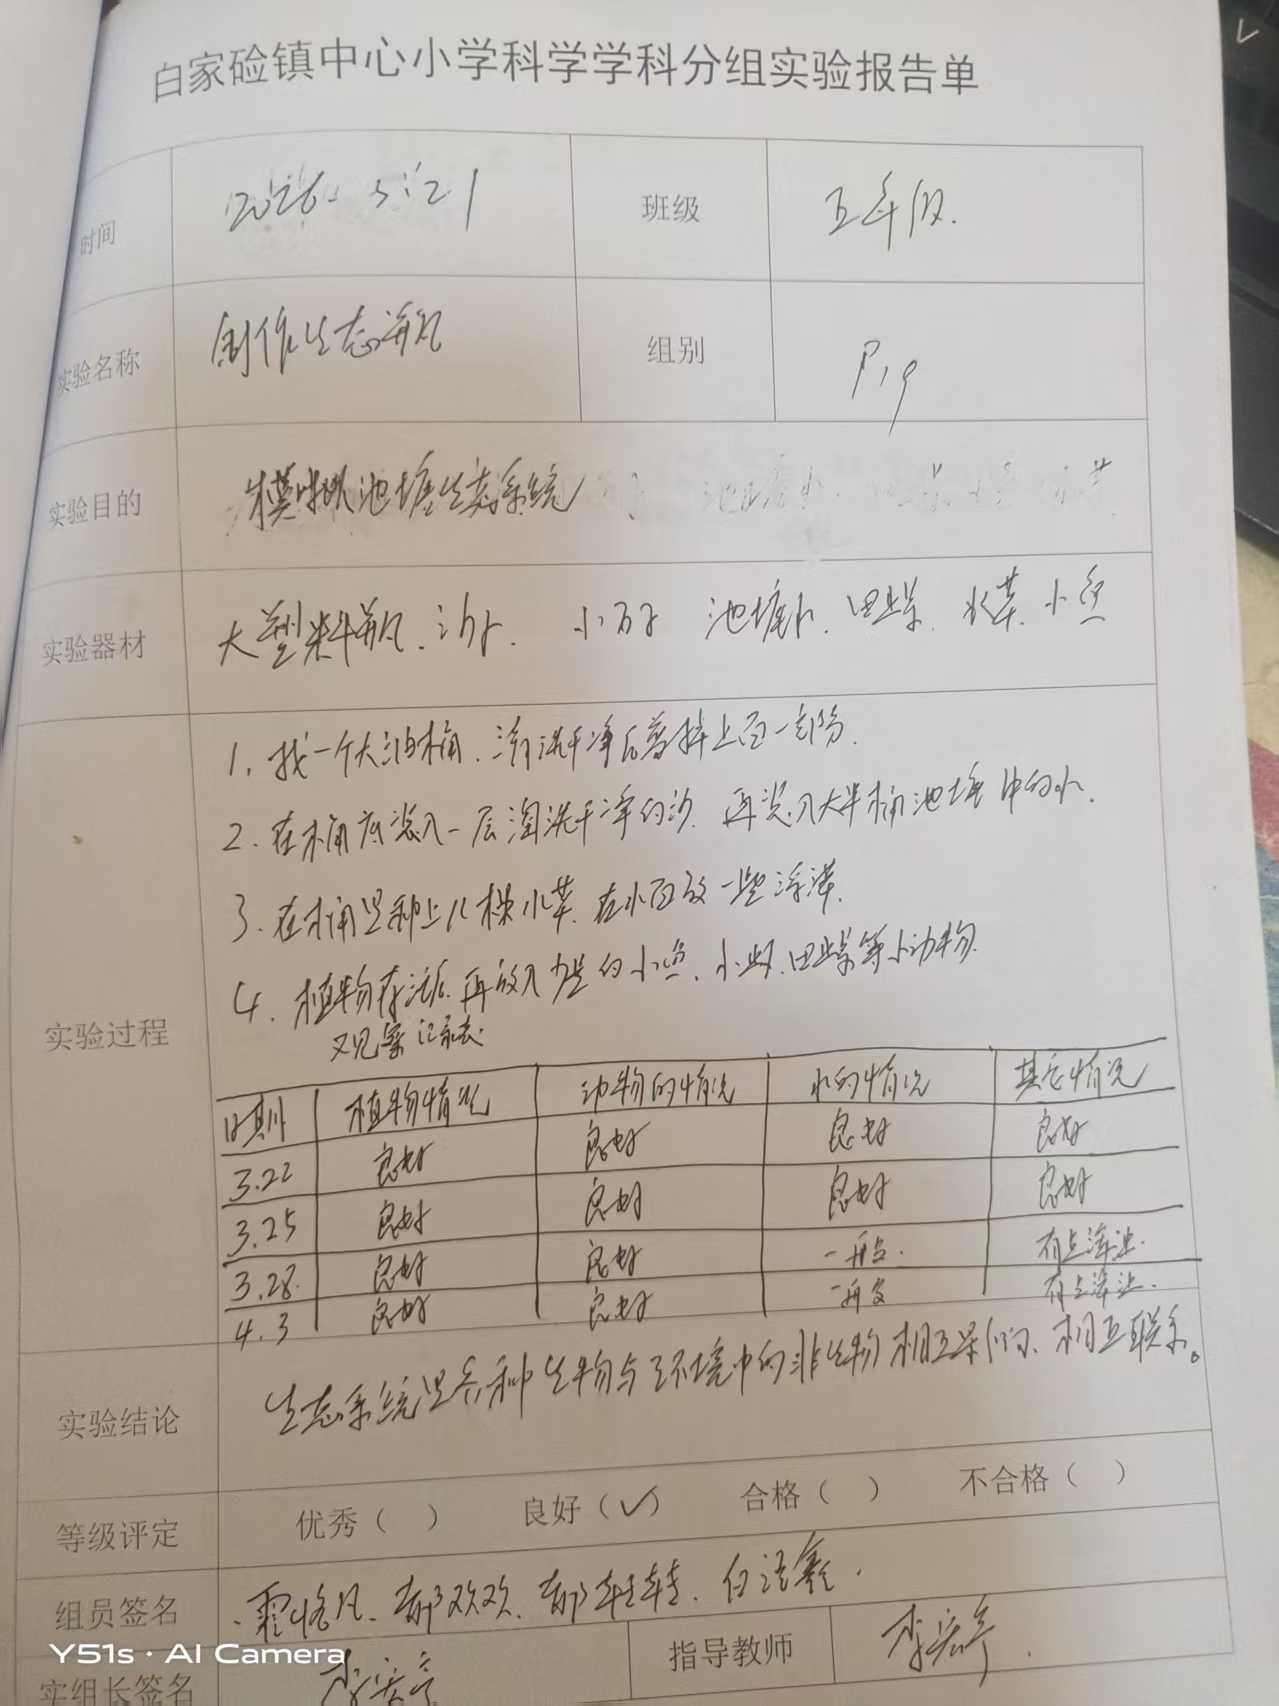 白家硷镇中心小学科学学科分组实验报告单
时间 2026.3.21 班级 五年级.
实验名称 制作生态瓶 组别
实验目的 模拟池塘生态系统
实验器材 大塑料瓶、沙、小石子 池塘水、田螺、水草、小鱼
实验过程
1、找一个大油桶、清洗干净后剪掉上面一部份.
2、在桶底装入一层淘洗干净的沙、再装入大半桶池塘中的水.
3、在桶里种上几株水草、在水面放一些浮萍.
4、植物存活后、再放入少量的小鱼、小虾、田螺等小动物.
观察记录表
日期 植物情况 动物的情况 水的情况 其它情况
3.22 良好 良好 良好 良好
3.25 良好 良好 良好 良好
3.28 良好 良好 一般 有点浑浊.
4.3 良好 良好 一般 有点浑浊.
实验结论 生态系统里各种生物与环境中的非生物相互影响、相互联系。
等级评定 优秀（ ） 良好（✓） 合格（ ） 不合格（ ）
组员签名 郝欢欢、郝
实组长签名 指导教师
Y51s · AI Camera